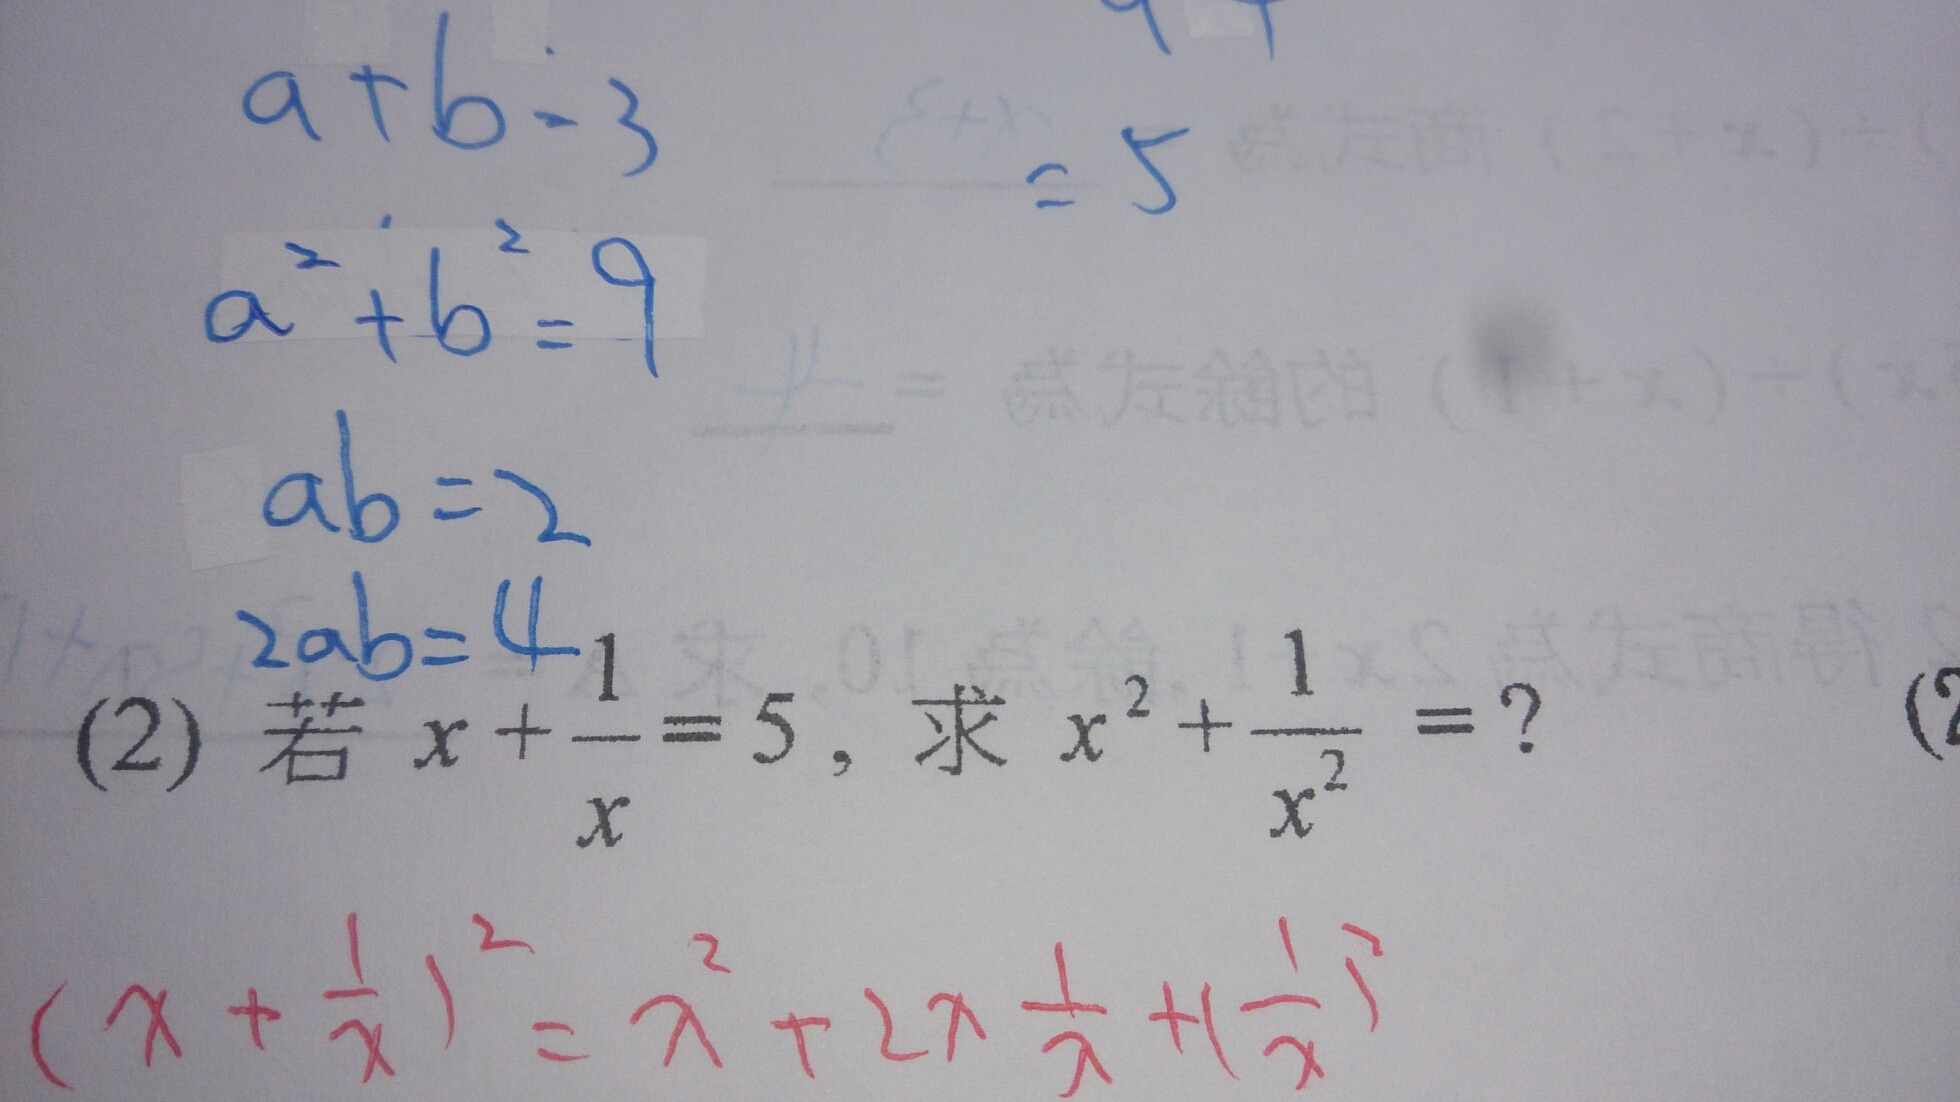 a+b=3
=5
a²+b²=9
ab=2
2ab=4
(2) 若 x+1/x=5, 求 x²+1/x²=?
(x+1/x)²=x²+2x 1/x+(1/x)²